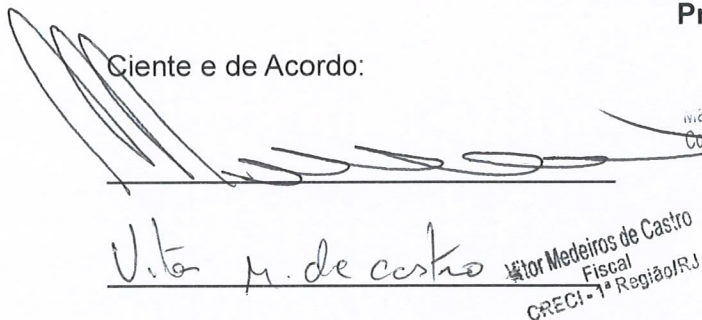 Pr
Ciente e de Acordo:
Co
Vitor M. de castro
Vitor Medeiros de Castro
Fiscal
CRECI - 1ª Região/RJ